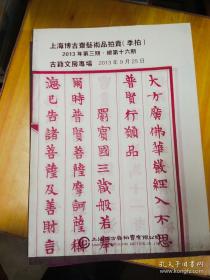 上海博古齋藝術品拍賣(季拍)
2013年第三期·總第十六期
古籍文房專場 2013年9月25日
大方廣佛華嚴經入不思
普賢行願品
罽賓國三藏般若奉
爾時普賢菩薩摩訶薩稱
已告諸菩薩及善財言
上海博古齋拍賣有限公司